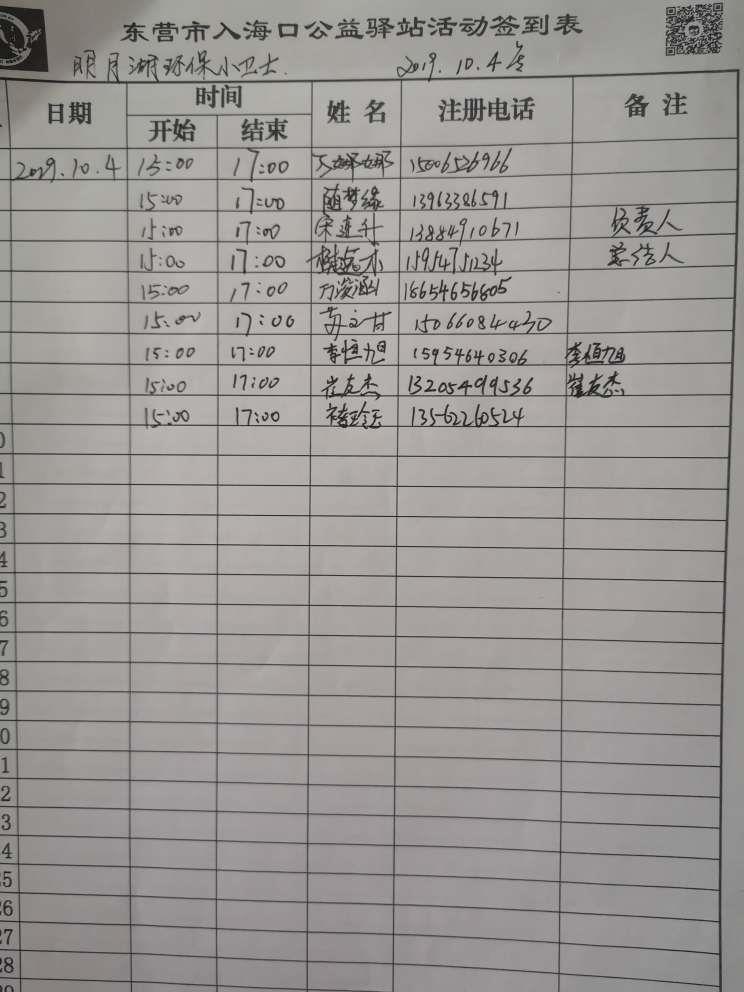 东营市入海口公益驿站活动签到表
明月湖环保小卫士. 2019.10.4号
日期 时间 姓名 注册电话 备注
开始 结束
2019.10.4 15:00 17:00 15006526966
15:00 17:00 随梦缘 13963386591
15:00 17:00 宋连升 13884910671 负责人
15:00 17:00 15954751234 总结人
15:00 17:00 18654656805
15:00 17:00 15066084430
15:00 17:00 李恒旭 15954640306 李恒旭
15:00 17:00 崔友杰 13205499536 崔友杰
15:00 17:00 13562260524
0
1
2
3
4
5
6
7
8
9
0
1
2
3
4
25
26
27
28
29